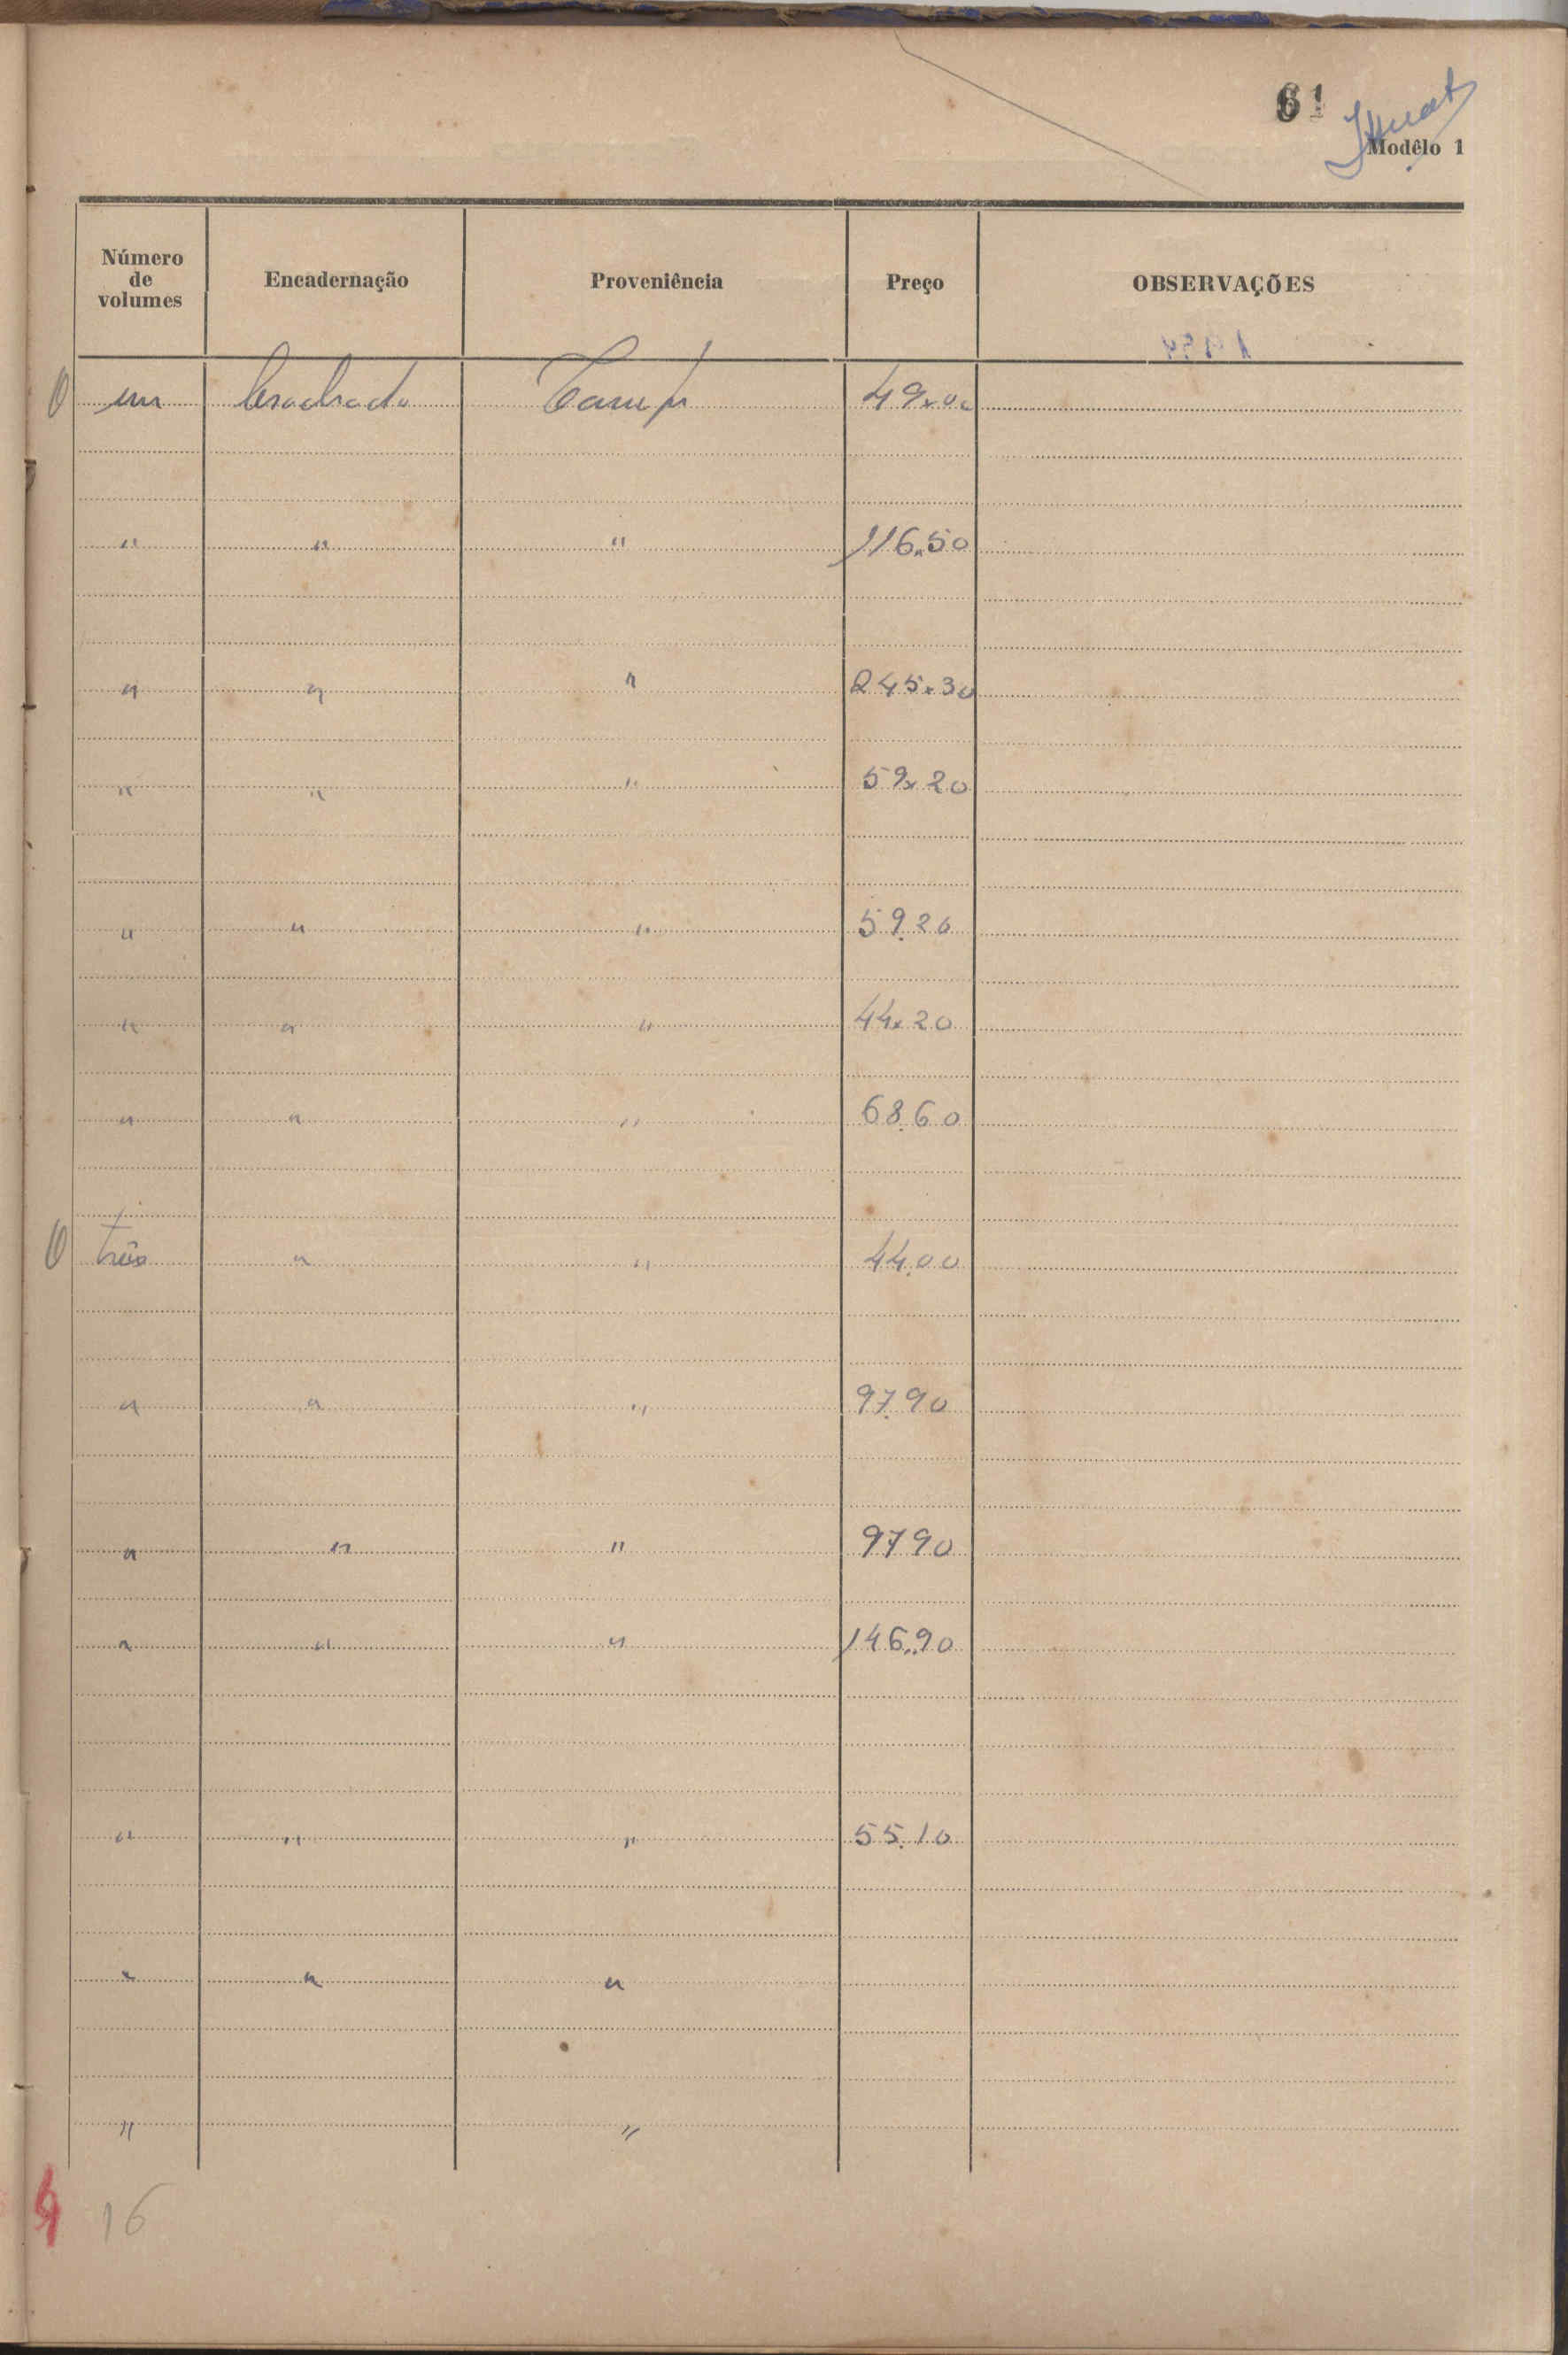 61
Modêlo 1
Número de volumes Encadernação Proveniência Preço OBSERVAÇÕES
um 49x00
" " " 116.50
" " " 245x30
" " " 59x20
" " " 59.20
" " " 44x20
" " " 68.60
três " " 44.00
" " " 97.90
" " " 9790
" " " 146..90
" " " 55.10
" " "
" "
16